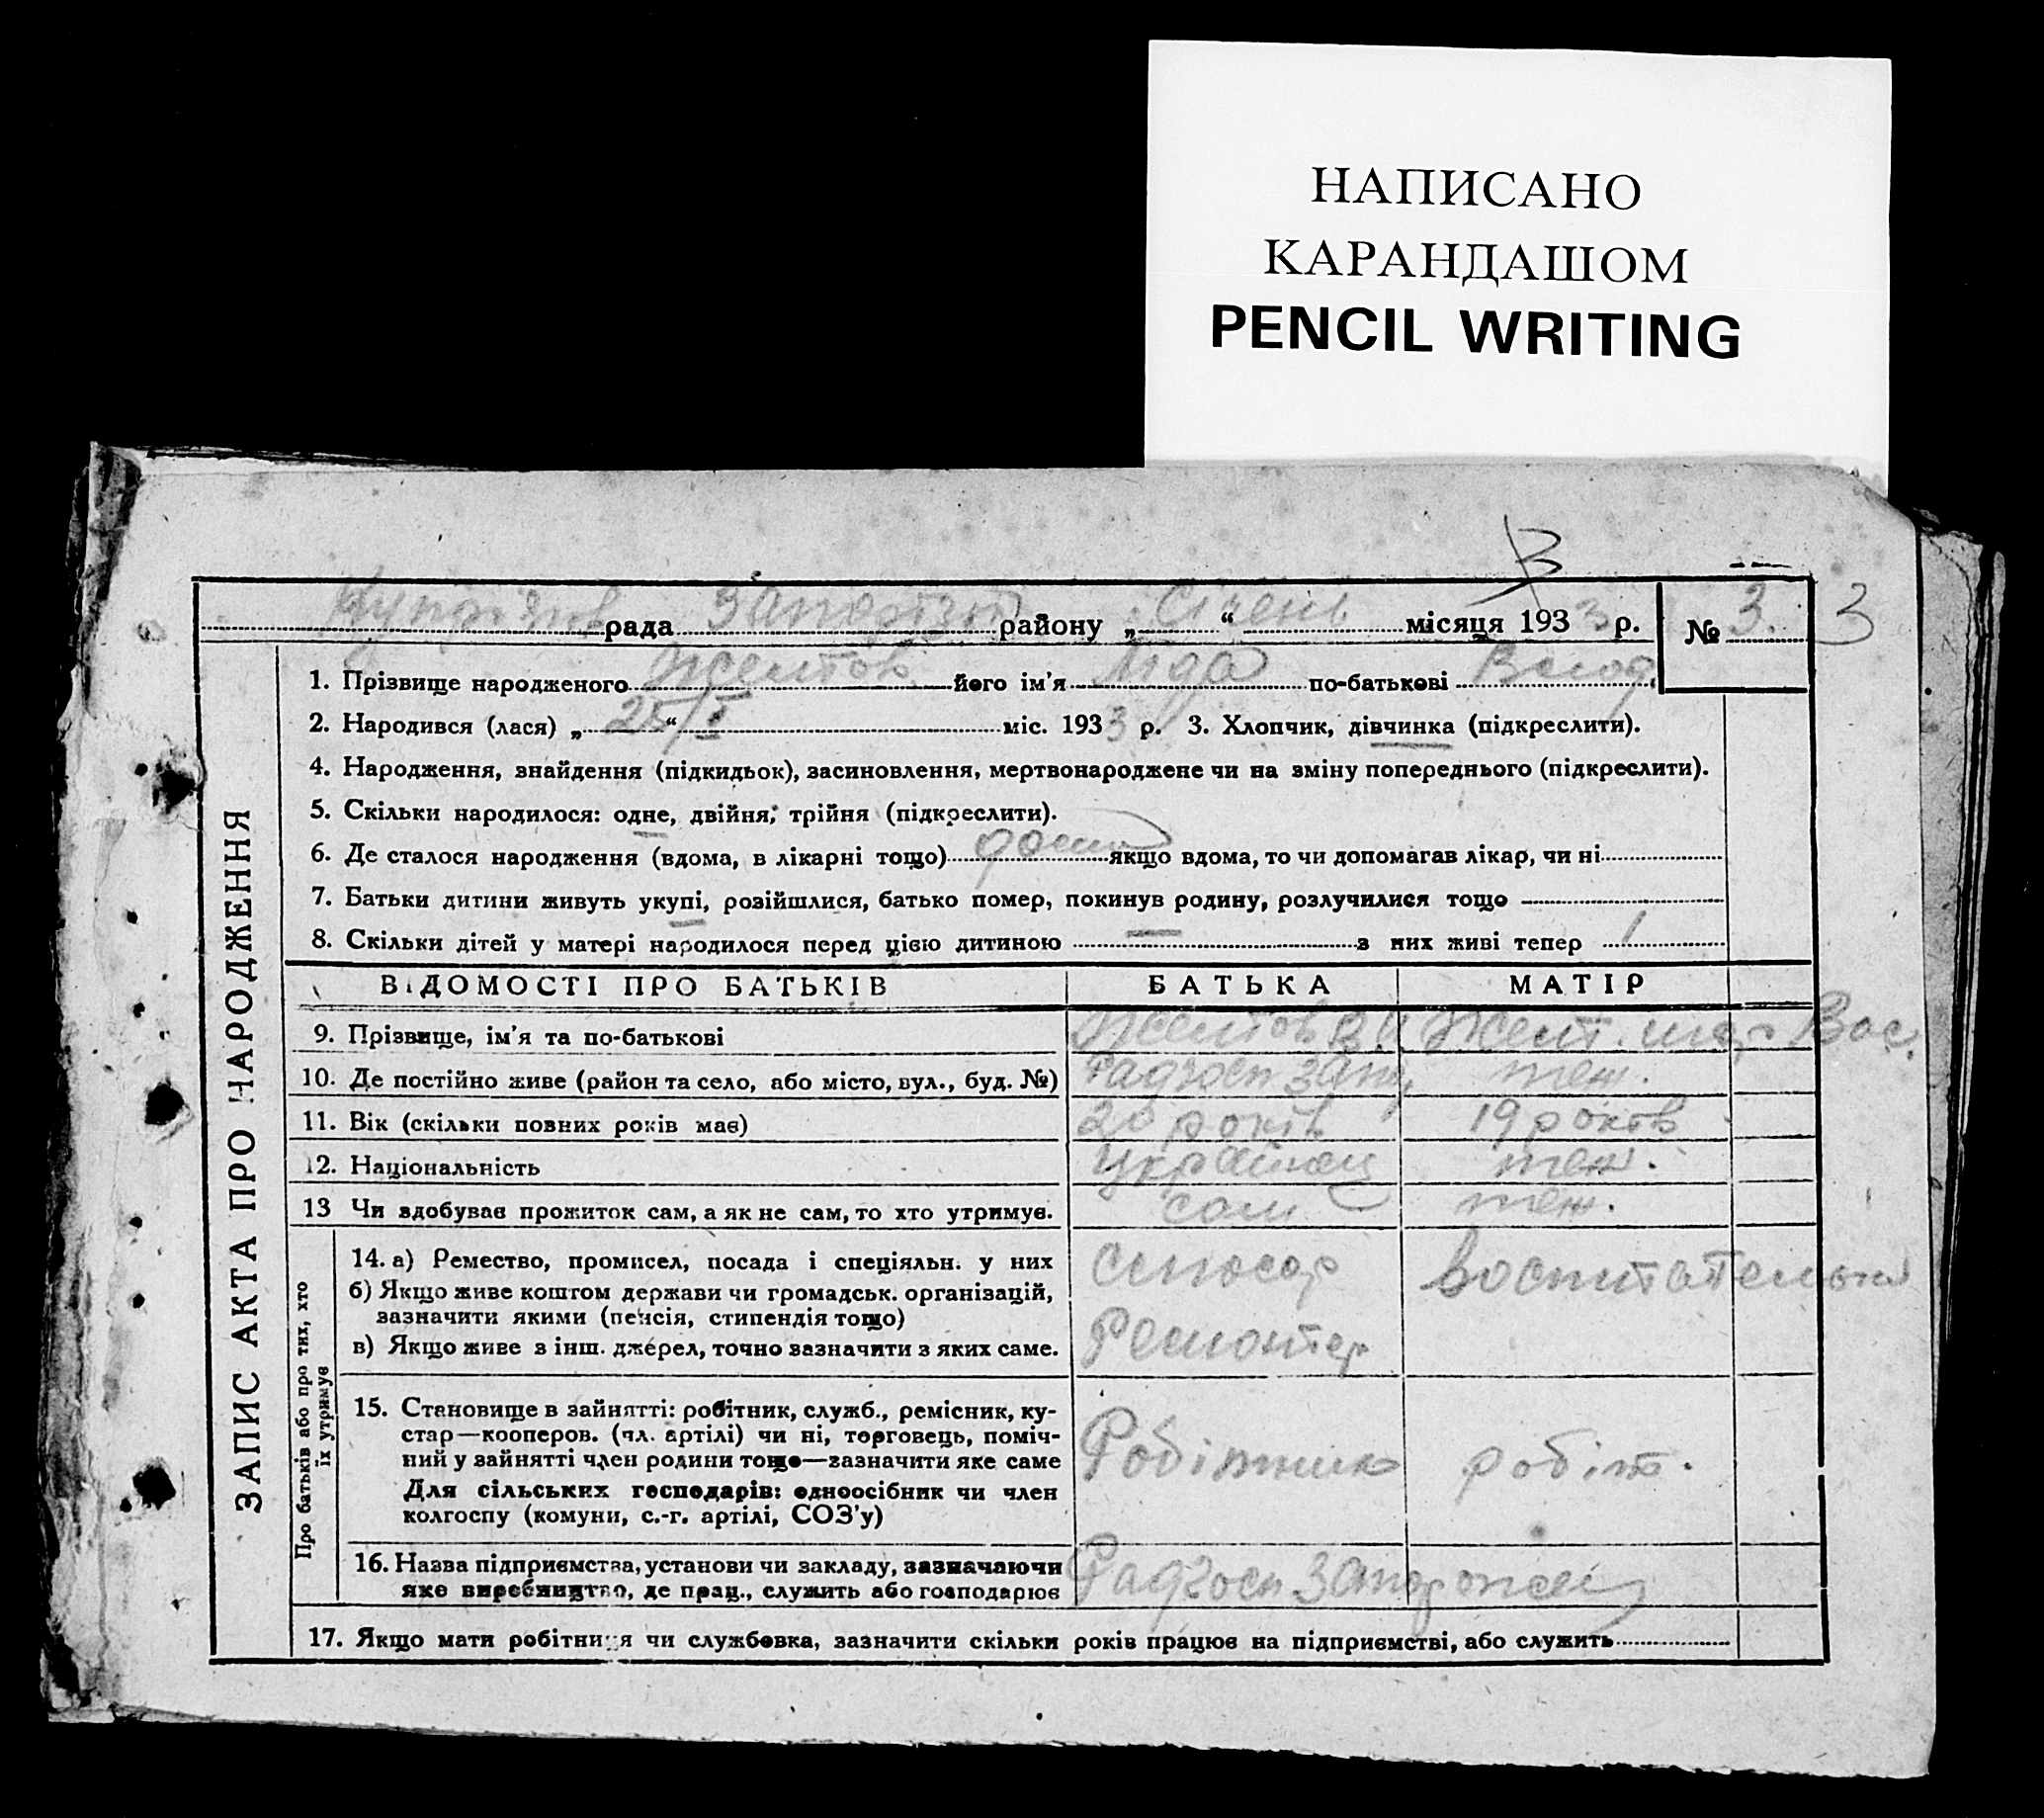 НАПИСАНО
КАРАНДАШОМ
PENCIL WRITING
3
рада району „ “ Січень місяця 1933 р. № 3. 3
1. Прізвище народженого Жентов його ім'я Ліда по-батькові Волод
2. Народився (лася) „ 25/I “ міс. 1933 р. 3. Хлопчик, дівчинка (підкреслити).
4. Народження, знайдення (підкидьок), засиновлення, мертвонароджене чи на зміну попереднього (підкреслити).
5. Скільки народилося: одне, двійня, трійня (підкреслити).
6. Де сталося народження (вдома, в лікарні тощо) дома якщо вдома, то чи допомагав лікар, чи ні
7. Батьки дитини живуть укупі, розійшлися, батько помер, покинув родину, розлучилися тощо
8. Скільки дітей у матері народилося перед цією дитиною — з них живі тепер 1
ВІДОМОСТІ ПРО БАТЬКІВ БАТЬКА МАТІР
9. Прізвище, ім'я та по-батькові Жентов В. И. Жент. Вас.
10. Де постійно живе (район та село, або місто, вул., буд. №) Радгосп Запор теж.
11. Вік (скільки повних років має) 20 років 19 років
12. Національність Українец теж.
13 Чи здобував прожиток сам, а як не сам, то хто утримує. сам теж.
14. а) Ремество, промисел, посада і спеціяльн. у них слюсар воспитательн
б) Якщо живе коштом держави чи громадськ. організацій,
зазначити якими (пенсія, стипендія тощо)
в) Якщо живе з інш. джерел, точно зазначити з яких саме. Ремонтер
15. Становище в зайнятті: робітник, служб., ремісник, ку-
стар—кооперов. (чл. артілі) чи ні, торговець, поміч-
ний у зайнятті член родини тощо—зазначити яке саме Робітник робіт.
Для сільських господарів: одноосібник чи член
колгоспу (комуни, с.-г. артілі, СОЗ'у)
16. Назва підприємства, установи чи закладу, зазначаючи
яке виробництво, де прац., служить або господарює Радгосп Запорожец
17. Якщо мати робітниця чи службовка, зазначити скільки років працює на підприємстві, або служить
ЗАПИС АКТА ПРО НАРОДЖЕННЯ
Про батьків або про тих, хто
їх утримує